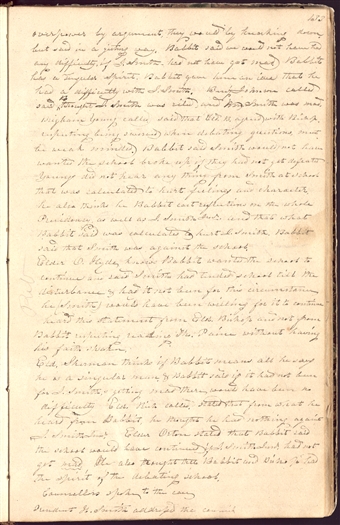 overpower by argument, they would by knocking down,
but said in a joking way, Babbit said we would not have had
any difficulty, if L. Smith had not have got mad, Babbit
has a singular spirit, Babbit gave him an idea that he
had a difficulty with L. Smith, called
said, thought L Smith was and Wm Smith was mad
Brigham Young called, said that Eld. H. agreed with Bishop,
respecting being when debating questions must
be weak minded, Babbit said Smith would not have
wanted the school broke up, if they had not got defeated
Youngs did not hear any thing from Smith at school
that was calculated to hurt feelings and character
he also thinks he Babbit cast reflections on the whole
Presidency as well as L Smith and that what
Babbit said was calculated to hurt L Smith, Babbit
said that Smith was against the school,
Elder O. Hyde, knows Babbit wanted the school to
continue and said Smith had tended school till the
disturbance & has it not been for this circumstance
he (Smith) would have been willing for it to continue
heard this statement from Eld Bishop and not from
Babbit respecting reading Th. Paine without having
his faith shaken,
Eld. Sherman thinks if Babbit means all he says
he is a singular man, & Babbit said if it had not been
for L Smith getting mad there would have been no
difficulty Eld. called, stated that from what he
heard from Babbit, he thought he had nothing against
L Smith Elder Orton stated that Babbit said
the school would have continued if L Smith had not
got mad. He also thought that Babbit and had
the spirit of the debating school,
Councillors spoke to the case
H. Smith addressed the council